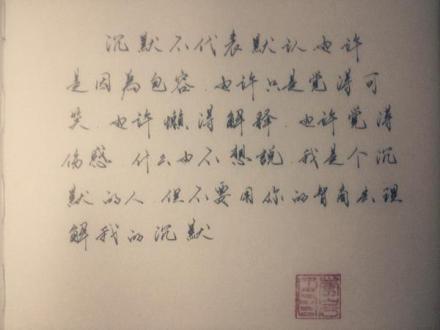 沉默不代表默认 也许
是因为包容 也许只是觉得可
笑 也许懒得解释 也许觉得
伤感 什么也不想説 我是个沉
默的人 但不要用你的智商去理
解我的沉默